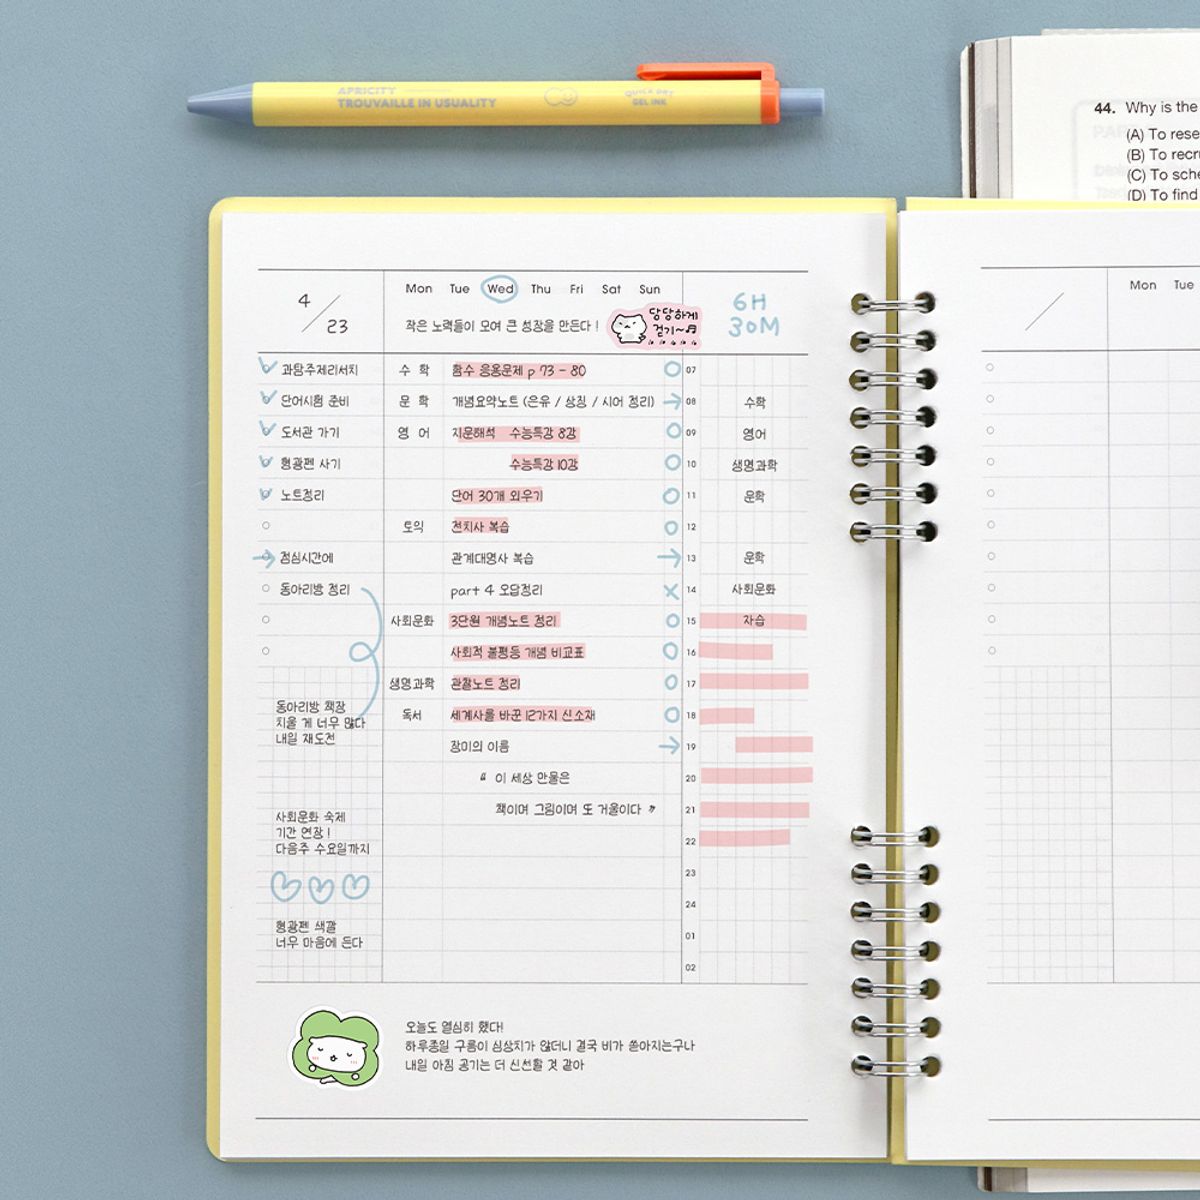 APRICITY
TROUVAILLE IN USUALITY
QUICK DRY
GEL INK
44. Why is the
(A) To rese
(B) To recr
(C) To sche
(D) To find
4 / 23
Mon Tue Wed Thu Fri Sat Sun
작은 노력들이 모여 큰 성장을 만든다!
당당하게
걷기~♬
6H
30M
과탐주제리서치
단어시험 준비
도서관 가기
형광펜 사기
노트정리
점심시간에
동아리방 정리
동아리방 책장
치울 게 너무 많다
내일 재도전
사회문화 숙제
기간 연장!
다음주 수요일까지
형광펜 색깔
너무 마음에 든다
수학 함수 응용문제 p 73 - 80
문학 개념요약노트 (은유 / 상징 / 시어 정리)
영어 지문해석 수능특강 8강
수능특강 10강
단어 30개 외우기
토익 전치사 복습
관계대명사 복습
part 4 오답정리
사회문화 3단원 개념노트 정리
사회적 불평등 개념 비교표
생명과학 관찰노트 정리
독서 세계사를 바꾼 12가지 신소재
장미의 이름
“ 이 세상 만물은
책이며 그림이며 또 거울이다 ”
07
08 수학
09 영어
10 생명과학
11 문학
12
13 문학
14 사회문화
15 자습
16
17
18
19
20
21
22
23
24
01
02
오늘도 열심히 했다!
하루종일 구름이 심상치가 않더니 결국 비가 쏟아지는구나
내일 아침 공기는 더 신선할 것 같아
Mon Tue